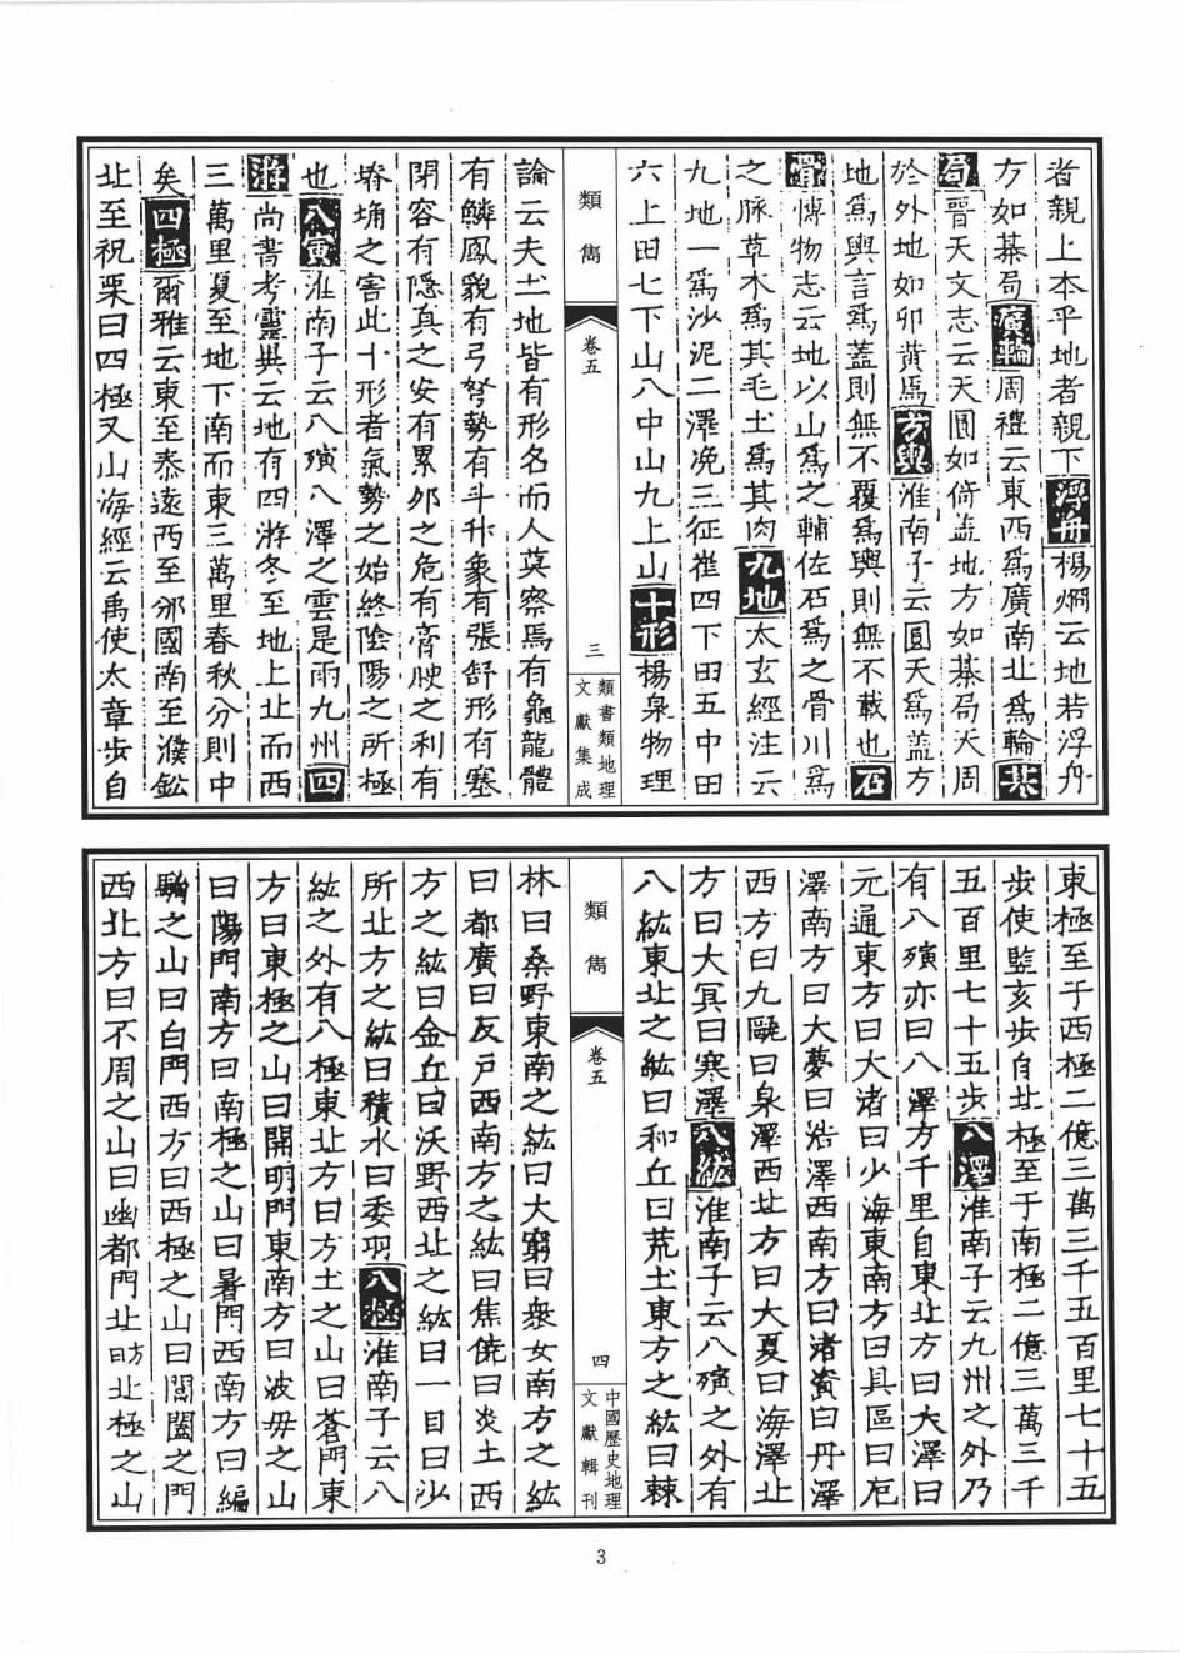 者親上本乎地者親下浮舟楊烱云地若浮舟
方如棊局廣輪周禮云東西爲廣南北爲輪棊
局晉天文志云天圓如倚蓋地方如棊局天周
於外地如卵黃焉方輿淮南子云圓天爲蓋方
地爲輿言爲蓋則無不覆爲輿則無不載也石
骨博物志云地以山爲之輔佐石爲之骨川爲
之脉草木爲其毛土爲其肉九地太玄經注云
九地一爲沙泥二澤浼三征崔四下田五中田
六上田七下山八中山九上山十形楊泉物理
類雋
卷五
三
類書類地理
文獻集成
論云夫土地皆有形名而人莫察焉有龜龍體
有鱗鳳貌有弓弩勢有斗升象有張舒形有塞
閉容有隱真之安有累夘之危有膏腴之利有
塉埆之害此十形者氣勢之始終陰陽之所極
也八寅淮南子云八殥八澤之雲是雨九州四
游尚書考靈異云地有四游冬至地上北而西
三萬里夏至地下南而東三萬里春秋分則中
矣四極爾雅云東至泰遠西至邠國南至濮鈆
北至祝栗曰四極又山海經云禹使太章步自
東極至于西極二億三萬三千五百里七十五
步使豎亥步自北極至于南極二億三萬三千
五百里七十五步八澤淮南子云九州之外乃
有八殥亦曰八澤方千里自東北方曰大澤曰
元通東方曰大渚曰少海東南方曰具區曰卮
澤南方曰大夢曰浩澤西南方曰渚資曰丹澤
西方曰九區曰泉澤西北方曰大夏曰海澤北
方曰大冥曰寒澤八紘淮南子云八殥之外有
八紘東北之紘曰和丘曰荒土東方之紘曰棘
類雋
卷五
四
中國歷史地理
文獻輯刊
林曰桑野東南之紘曰大窮曰衆女南方之紘
曰都廣曰反戶西南方之紘曰焦僥曰炎土西
方之紘曰金丘曰沃野西北之紘曰一目曰沙
所北方之紘曰積氷曰委羽八極淮南子云八
紘之外有八極東北方曰方土之山曰蒼門東
方曰東極之山曰開明門東南方曰波毋之山
曰陽門南方曰南極之山曰暑門西南方曰編
駒之山曰白門西方曰西極之山曰閶闔之門
西北方曰不周之山曰幽都門北方曰北極之山
3